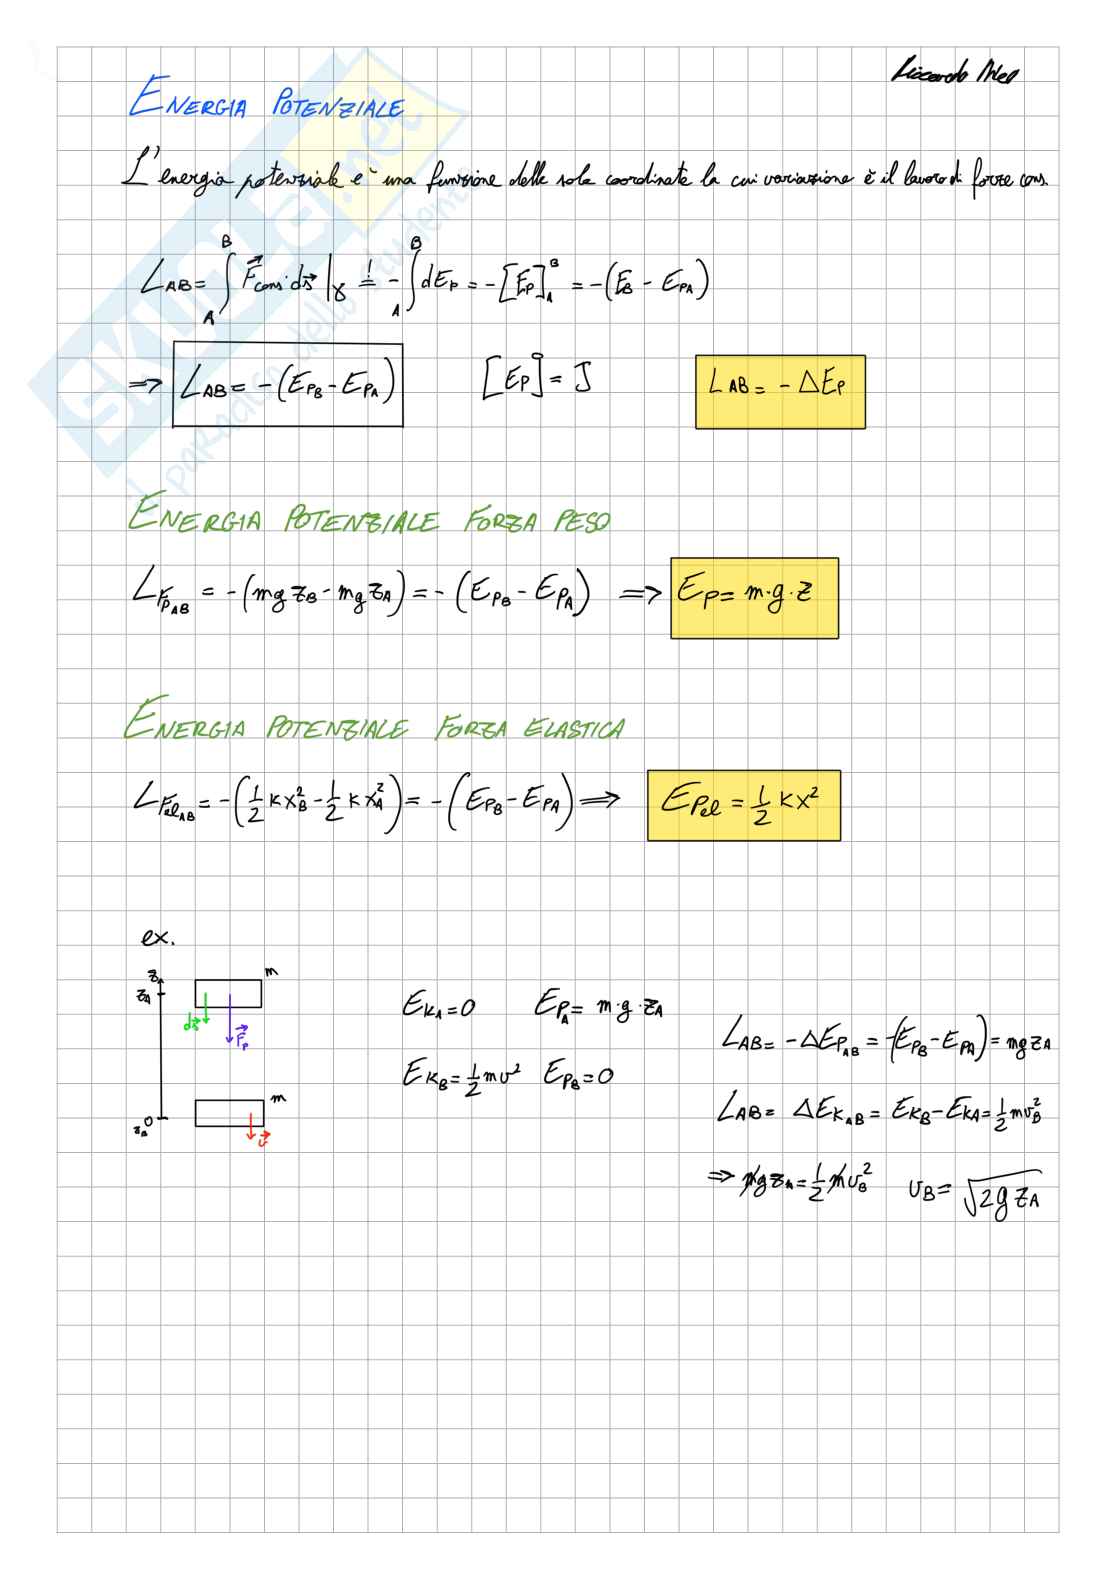 Riccardo
ENERGIA POTENZIALE
L'energia potenziale e' una funzione delle sole coordinate la cui variazione è il lavoro di forze cons.
L_AB = ∫_A^B F⃗cons · ds⃗ |γ =! - ∫_A^B dEp = - [Ep]_A^B = - (E_B - E_PA)
⇒ L_AB = - (E_PB - E_PA) [Ep] = J L_AB = - ΔEp
ENERGIA POTENZIALE FORZA PESO
L_Fp_AB = - (mg z_B - mg z_A) = - (E_PB - E_PA) ⇒ Ep = m·g·z
ENERGIA POTENZIALE FORZA ELASTICA
L_Fel_AB = - (1/2 K x_B² - 1/2 K x_A²) = - (E_PB - E_PA) ⇒ E_Pel = 1/2 K x²
ex.
z
z_A
m
ds⃗
F⃗p
0
m
v⃗
E_KA = 0 E_PA = m·g·z_A
E_KB = 1/2 mv² E_PB = 0
L_AB = - ΔE_P_AB = -(E_PB - E_PA) = mg z_A
L_AB = ΔE_K_AB = E_KB - E_KA = 1/2 m v_B²
⇒ mg z_A = 1/2 m v_B² v_B = √2g z_A
SKUOLA.net
il paradiso dello studente